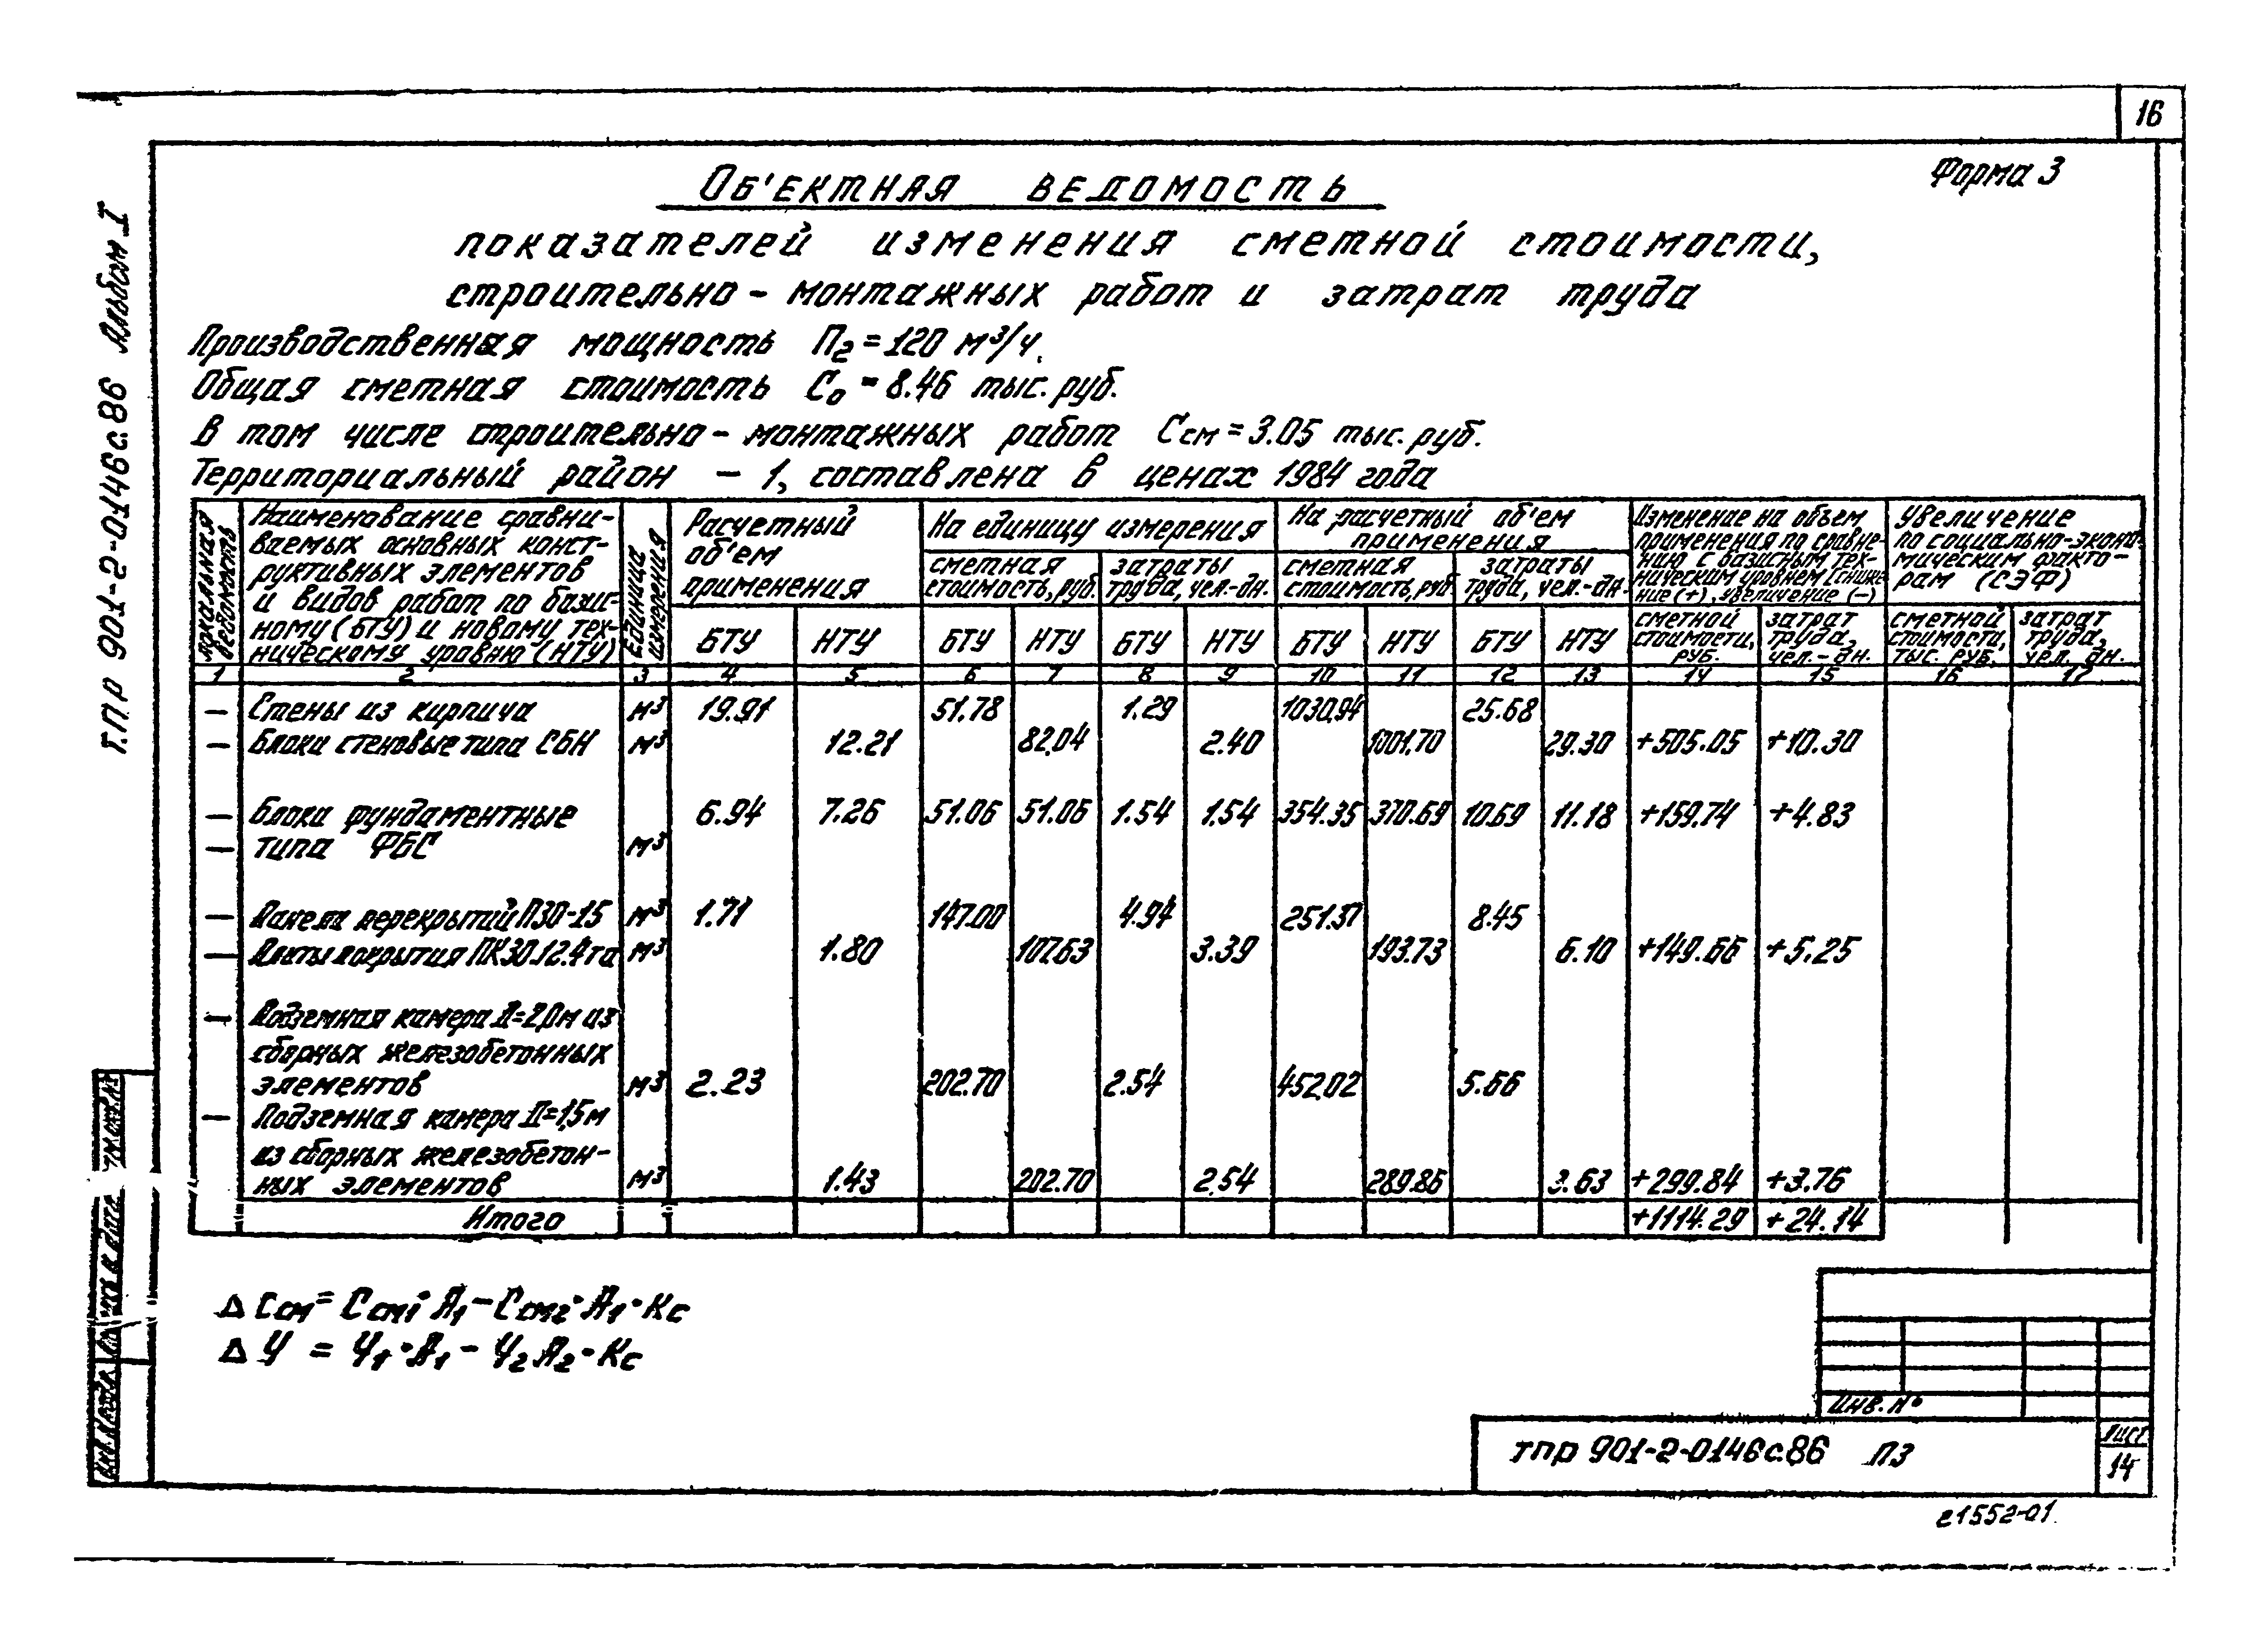 16
Форма 3
Об'ектная ведомость
показателей изменения сметной стоимости,
строительно-монтажных работ и затрат труда
Производственная мощность П2=120 м³/ч.
Общая сметная стоимость Со=8.46 тыс. руб.
В том числе строительно-монтажных работ Ссм=3.05 тыс. руб.
Территориальный район - 1, составлена в ценах 1984 года
т.пр 901-2-0146с.86 Альбом I
Локальная ведомость
Наименование сравни-
ваемых основных конст-
руктивных элементов
и видов работ по базис-
ному (БТУ) и новому тех-
ническому уровню (НТУ)
Единица измерения
Расчетный
об'ем
применения
На единицу измерения
На расчетный об'ем
применения
Изменение на объем
применения по сравне-
нию с базисным тех-
ническим уровнем (сниже
ние (+), увеличение (-)
Увеличение
по социально-эконо-
мическим факто-
рам (СЭФ)
сметная стоимость, руб. затраты труда, чел.-дн. сметная стоимость, руб. затраты труда, чел.-дн.
БТУ НТУ БТУ НТУ БТУ НТУ БТУ НТУ БТУ НТУ
сметной стоимости, руб. затрат труда, чел.-дн. сметной стоимости, тыс. руб. затрат труда, чел. дн.
1 2 3 4 5 6 7 8 9 10 11 12 13 14 15 16 17
— Стены из кирпича м³ 19.91 51.78 1.29 1030,94 25.68
— Блоки стеновые типа СБН м³ 12.21 82,04 2.40 1001,70 29.30 +505.05 +10.30
— Блоки фундаментные 6.94 7.26 51.06 51.06 1.54 1.54 354.35 370.69 10.69 11.18 +159.74 +4.83
— типа ФБС м³
— Панели перекрытий П30-15 м³ 1.71 147.00 4.94 251.37 8.45
— Плиты покрытия ПК30.12.4та м³ 1.80 107.63 3.39 193.73 6.10 +149.66 +5.25
— Подземная камера Д=2,0м из
сборных железобетонных
элементов м³ 2.23 202.70 2.54 452,02 5.66
— Подземная камера Д=1,5м
из сборных железобетон-
ных элементов м³ 1.43 202.70 2.54 289.86 3.63 +299.84 +3.76
Итого +1114.29 +24.14
Δ Ссм = Ссм1·А1 - Ссм2·А1·Кс
Δ У = У1·А1 - У2 А2·Кс
Инв. №
тпр 901-2-0146с.86 ПЗ
Лист
14
21552-01